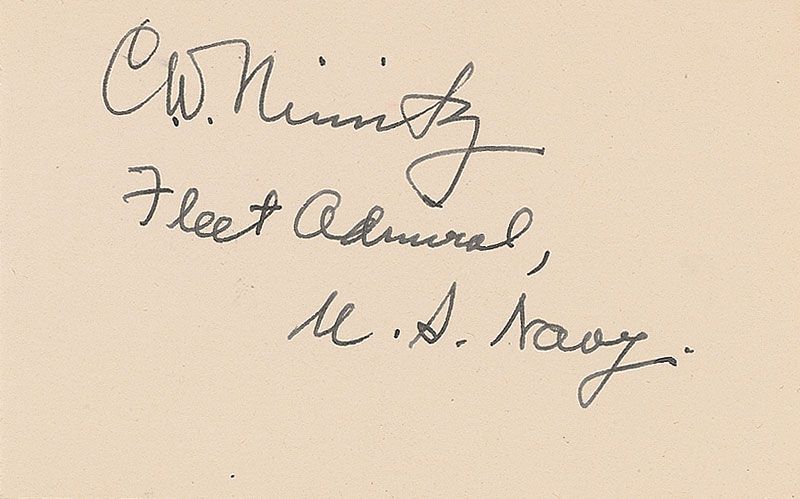 C.W. Nimitz
Fleet Admiral,
U.S. Navy.